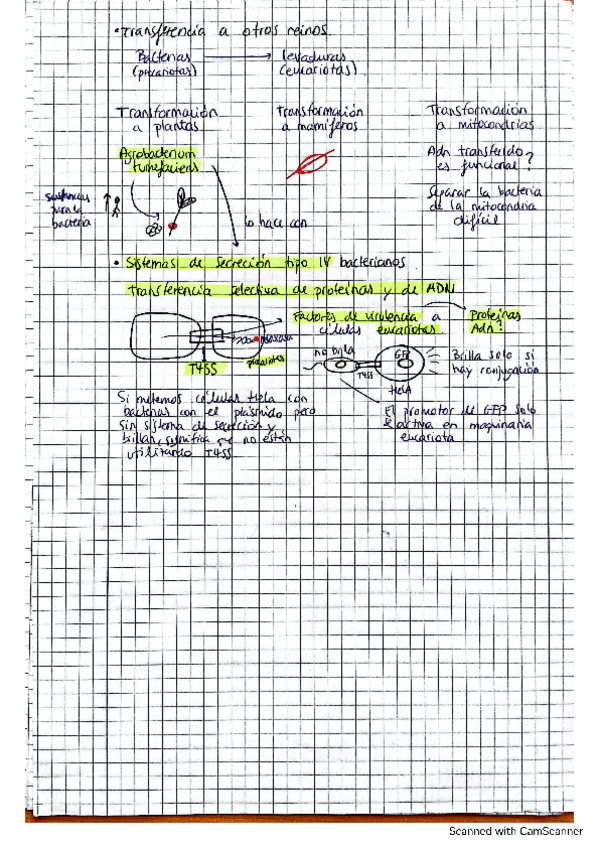 • Transferencia a otros reinos
Bacterias → levaduras
(procariotas) (eucariotas)
Transformación
a plantas
Transformación
a mamíferos
Transformación
a mitocondrias
Agrobacterium
tumefaciens
Adn transferido
es funcional?
Separar la bacteria
de la mitocondria
difícil
sustancias
para la
bacteria
lo hace con
• Sistemas de secreción tipo IV bacterianos
transferencia selectiva de proteínas y de ADN
Factores de virulencia a
células eucariotas
Proteínas
Adn?
T4SS
no brilla
GFP
T4SS
HeLa
Brilla solo si
hay conjugación
Si metemos células Hela con
bacterias con el plásmido pero
sin sistema de secreción y
brillan, significa que no están
utilizando T4SS
El promotor de GFP solo
se activa en maquinaria
eucariota
Scanned with CamScanner